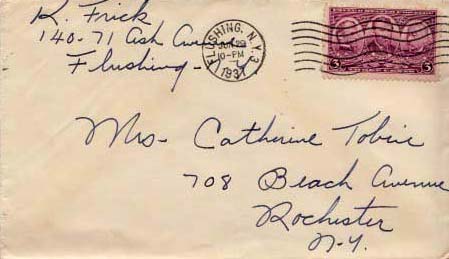 K. Frick
140-71 Ash Avenue
Flushing -
FLUSHING, N.Y. 3
10-PM
1937
3 3
Mrs- Catherine Tobin
708 Beach Avenue
Rochester
N-Y.